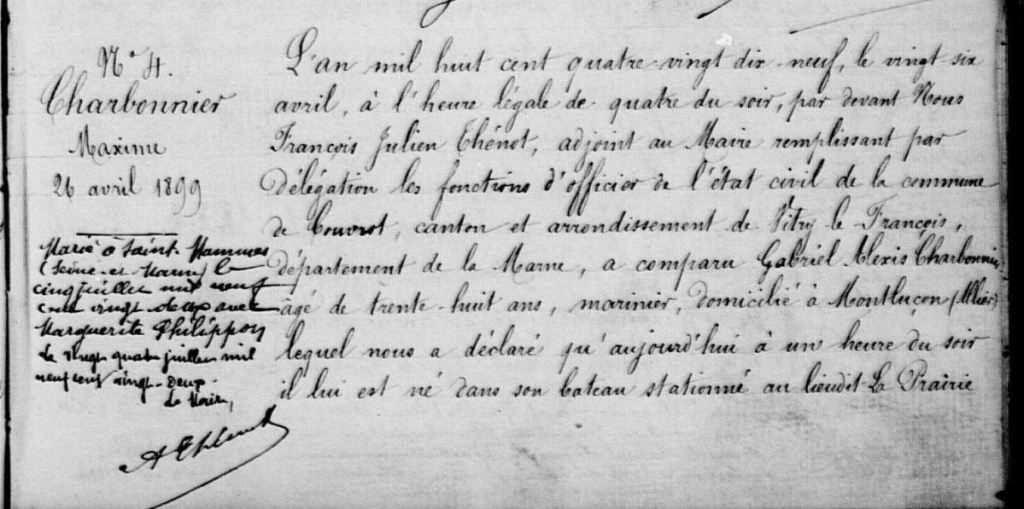 N° 4.
Charbonnier
Maxime
26 avril 1899
Marié à Saint-Mammès
(Seine-et-Marne) le
cinq juillet mil neuf
cent vingt-deux avec
Marguerite Philippon
Le vingt quatre juillet mil
neuf cent vingt-deux.
Le Maire,
L'an mil huit cent quatre-vingt dix-neuf, le vingt-six
avril, à l'heure légale de quatre du soir, par devant Nous
François Julien Thénot, adjoint au Maire remplissant par
délégation les fonctions d'officier de l'état civil de la commune
de Couvrot, canton et arrondissement de Vitry-le-François,
département de la Marne, a comparu Gabriel Alexis Charbonnier,
âgé de trente-huit ans, marinier, domicilié à Montluçon (Allier)
lequel nous a déclaré qu'aujourd'hui à un heure du soir
il lui est né dans son bateau stationné au lieudit La Prairie